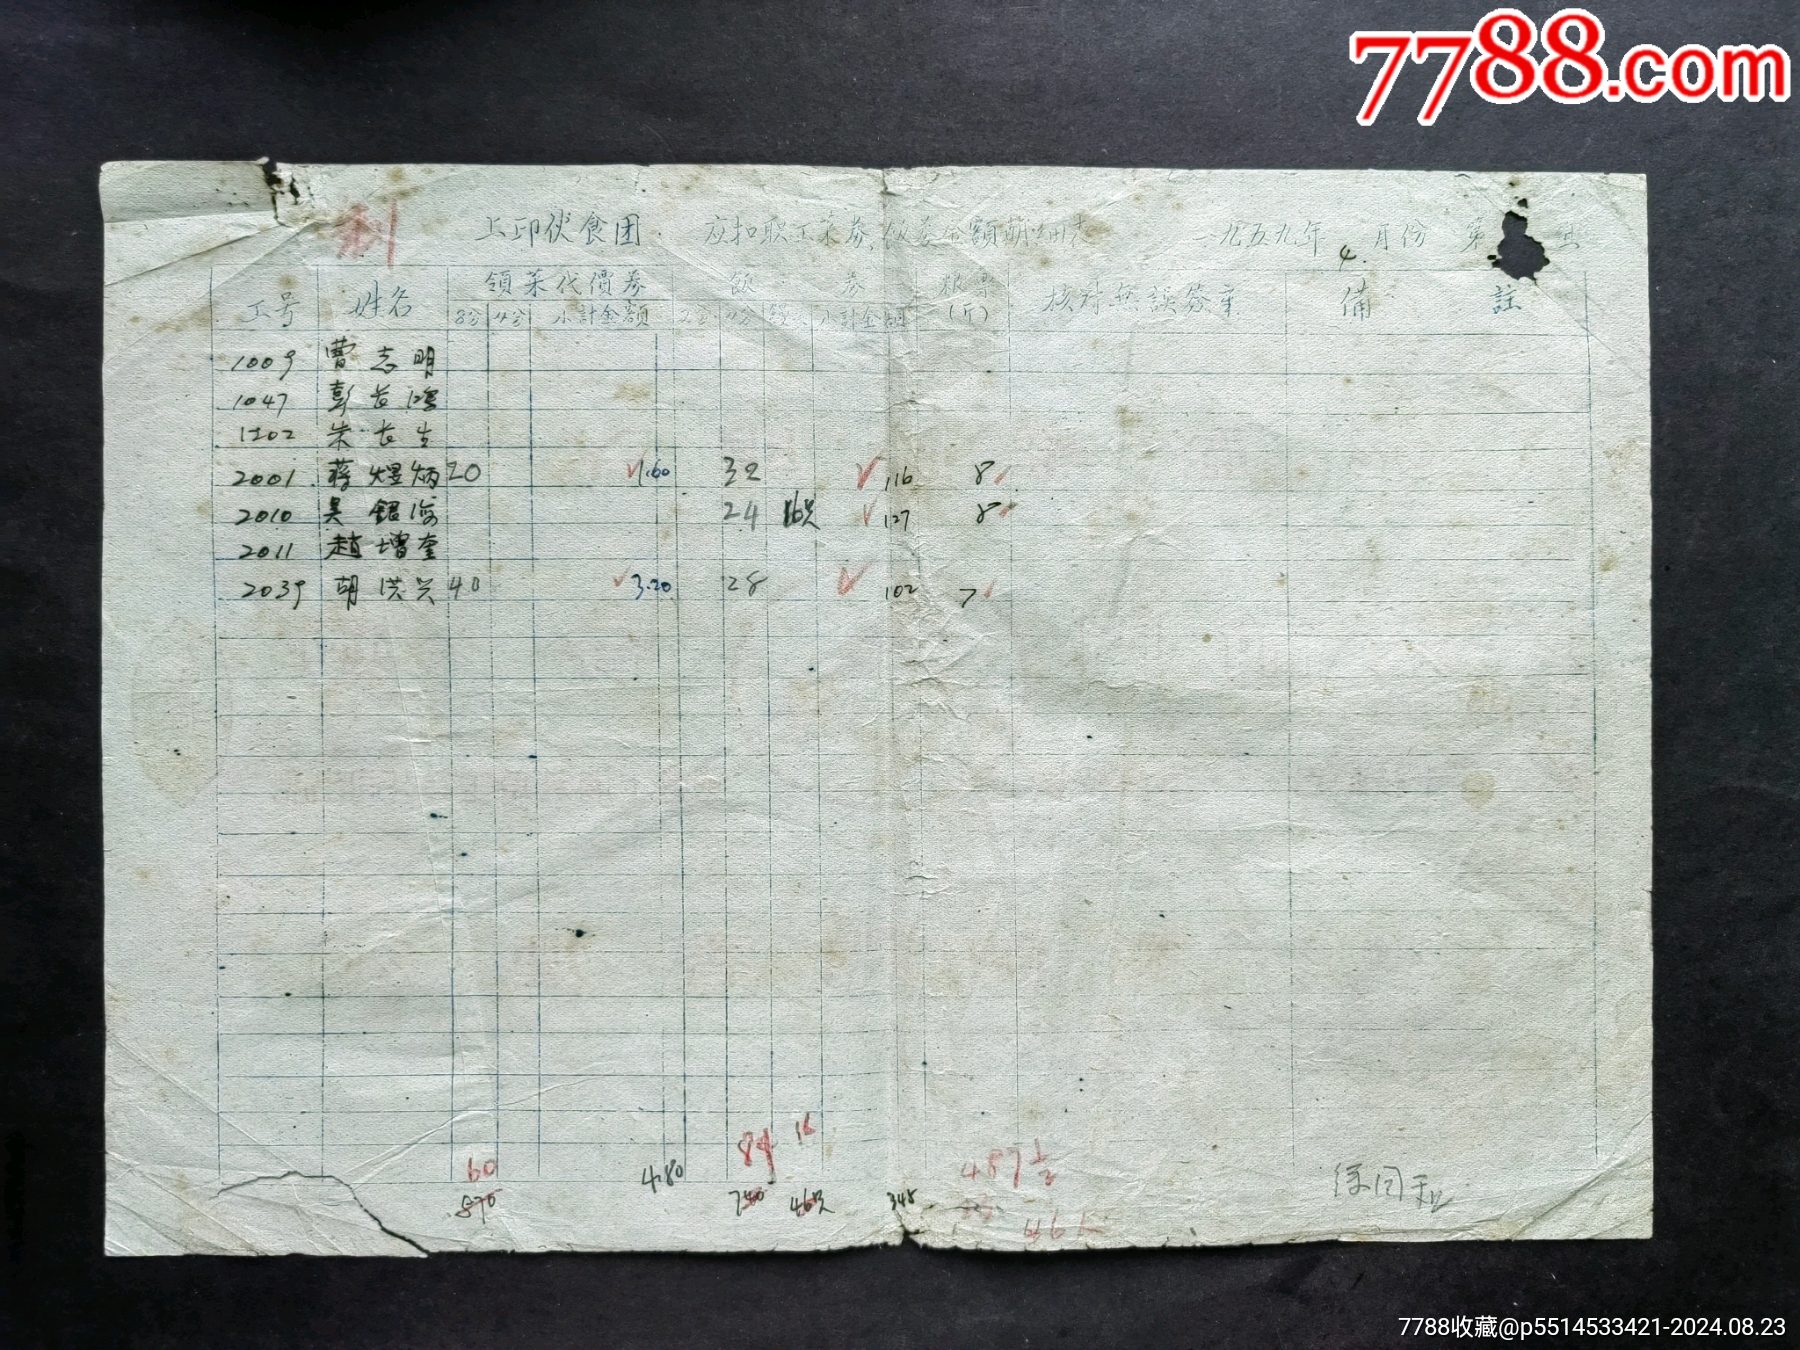 7788.com
上印伙食团 应扣职工菜券、饭券金额明细表 一九五九年 4 月份 第 组
工号 姓名 領菜代價券 飯 券 粮票(斤) 核对無誤簽章 備 註
8分 4分 小計金額 2分 4分 小計金額
1009 曹志明
1047 彭长鸿
1202 朱长生
2001 蒋煜炳 20 1.60 32 116 8
2010 吴银海 24 16只 127 8
2011 趙增奎
2039 胡洪兴 40 3.20 28 102 7
60 4.80 84 16 487
870 740 46只 345
46
7788收藏@p5514533421-2024.08.23